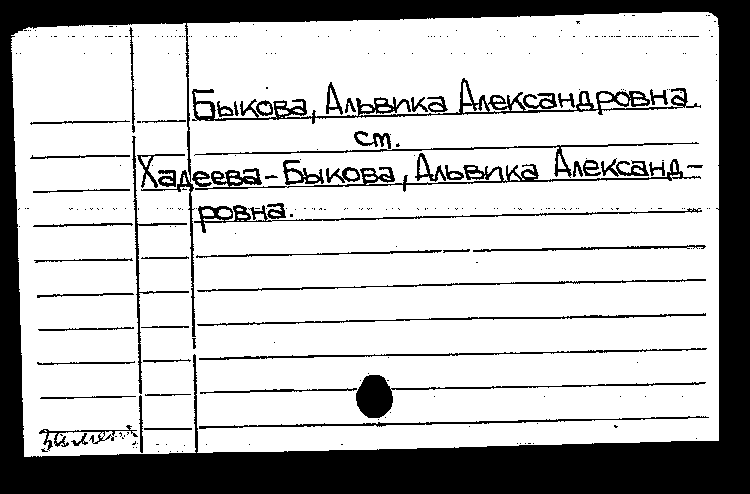 Быкова, Альвика Александровна.
ст.
Хадеева-Быкова, Альвика Александ-
ровна.